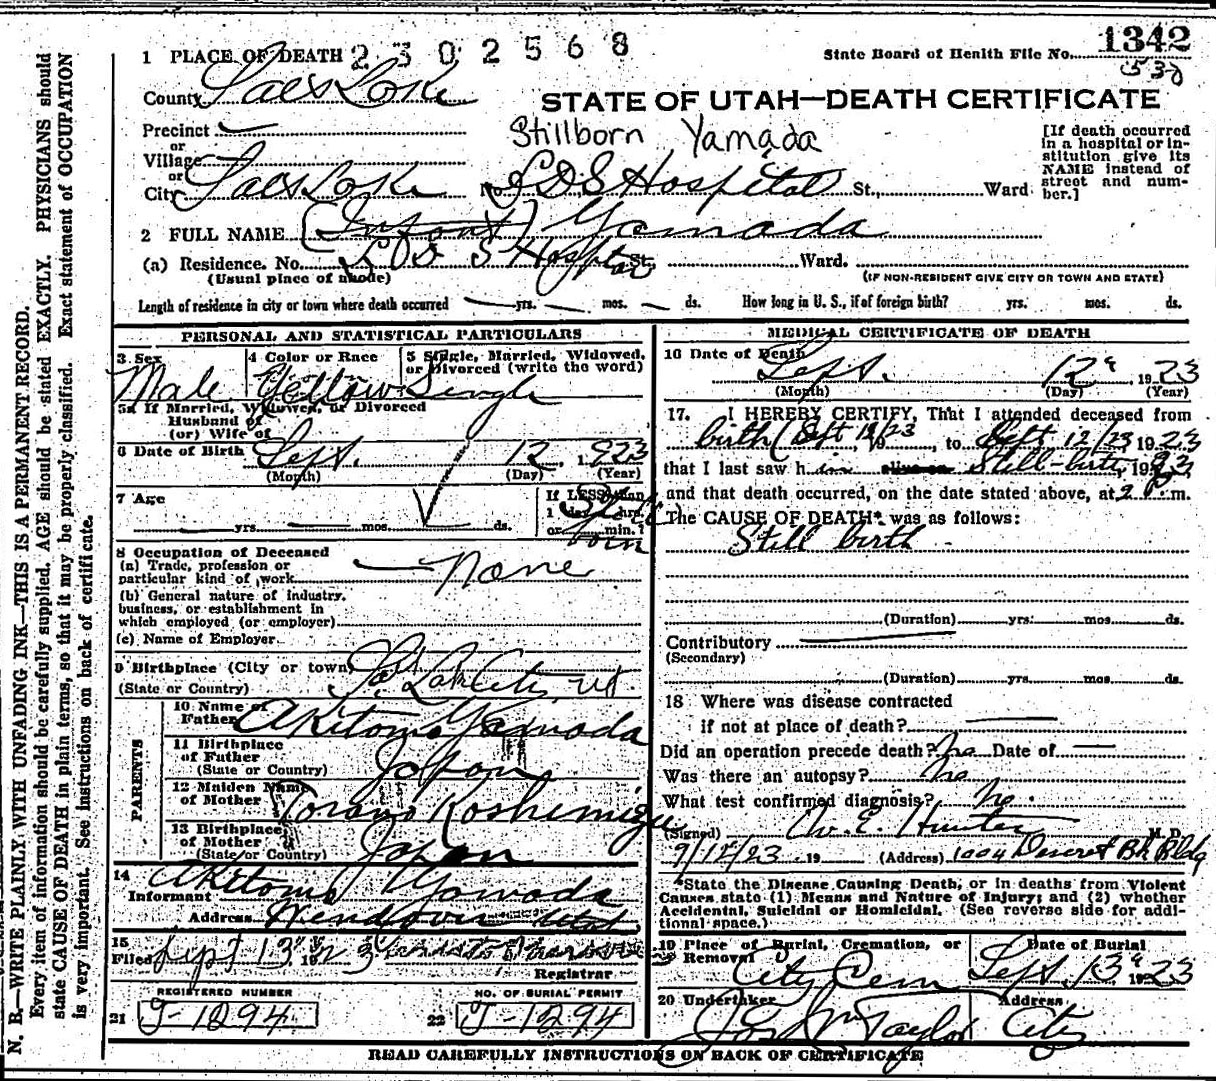 1342
State Board of Health File No.
1 PLACE OF DEATH 2302568
530
County Salt Lake
STATE OF UTAH—DEATH CERTIFICATE
Precinct
Stillborn Yamada
[If death occurred in a hospital or in-stitution give its NAME instead of street and num-ber.]
or
Village
or
City Salt Lake No. LDS Hospital St., Ward
2 FULL NAME (Infant) Yamada
(a) Residence. No. LDS Hospital St. Ward.
(Usual place of abode) (IF NON-RESIDENT GIVE CITY OR TOWN AND STATE)
Length of residence in city or town where death occurred yrs. mos. ds. How long in U. S., if of foreign birth? yrs. mos. ds.
PERSONAL AND STATISTICAL PARTICULARS
3 Sex 4 Color or Race 5 Single, Married, Widowed,
or Divorced (write the word)
Male Yellow Single
5a If Married, Widowed, or Divorced
Husband of
(or) Wife of
6 Date of Birth Sept. 12, 1923
(Month) (Day) (Year)
7 Age If LESS than
1 day hrs.
yrs. mos. ds. or min.?
Still born
8 Occupation of Deceased
(a) Trade, profession or
particular kind of work None
(b) General nature of industry,
business, or establishment in
which employed (or employer)
(c) Name of Employer
9 Birthplace (City or town)
(State or Country) Salt Lake City, Ut
PARENTS
10 Name of
Father Akitomo Yamada
11 Birthplace
of Father
(State or Country) Japan
12 Maiden Name
of Mother Torano Koshimizu
13 Birthplace
of Mother
(State/or Country) Japan
14
Informant Akitomo Yamada
Address Wendover Utah
15
Filed Sept 13 1923
Registrar
REGISTERED NUMBER NO. OF BURIAL PERMIT
21 J-1294 22 J-1294
MEDICAL CERTIFICATE OF DEATH
16 Date of Death
Sept. 12" 1923
(Month) (Day) (Year)
17. I HEREBY CERTIFY, That I attended deceased from
birth (Sept 12/23 19 , to Sept 12/23 1923
that I last saw him alive on Still-birth, 1923
and that death occurred, on the date stated above, at 2 P. m.
The CAUSE OF DEATH* was as follows:
Still birth
(Duration) yrs. mos. ds.
Contributory
(Secondary)
(Duration) yrs. mos. ds.
18 Where was disease contracted
if not at place of death?
Did an operation precede death? no Date of
Was there an autopsy? no
What test confirmed diagnosis? no
(Signed) W. E. Hunter M. D.
9/12/23 19 (Address) 1004 Deseret Bk Bldg
*State the Disease Causing Death, or in deaths from Violent
Causes state (1) Means and Nature of Injury; and (2) whether
Accidental, Suicidal or Homicidal. (See reverse side for addi-
tional space.)
19 Place of Burial, Cremation, or Date of Burial
Removal
City Cem Sept. 13" 1923
20 Undertaker Address
Jos Wm Taylor City
READ CAREFULLY INSTRUCTIONS ON BACK OF CERTIFICATE
N. B.—WRITE PLAINLY WITH UNFADING INK—THIS IS A PERMANENT RECORD.
Every item of information should be carefully supplied. AGE should be stated EXACTLY. PHYSICIANS should
state CAUSE OF DEATH in plain terms, so that it may be properly classified. Exact statement of OCCUPATION
is very important. See instructions on back of certificate.